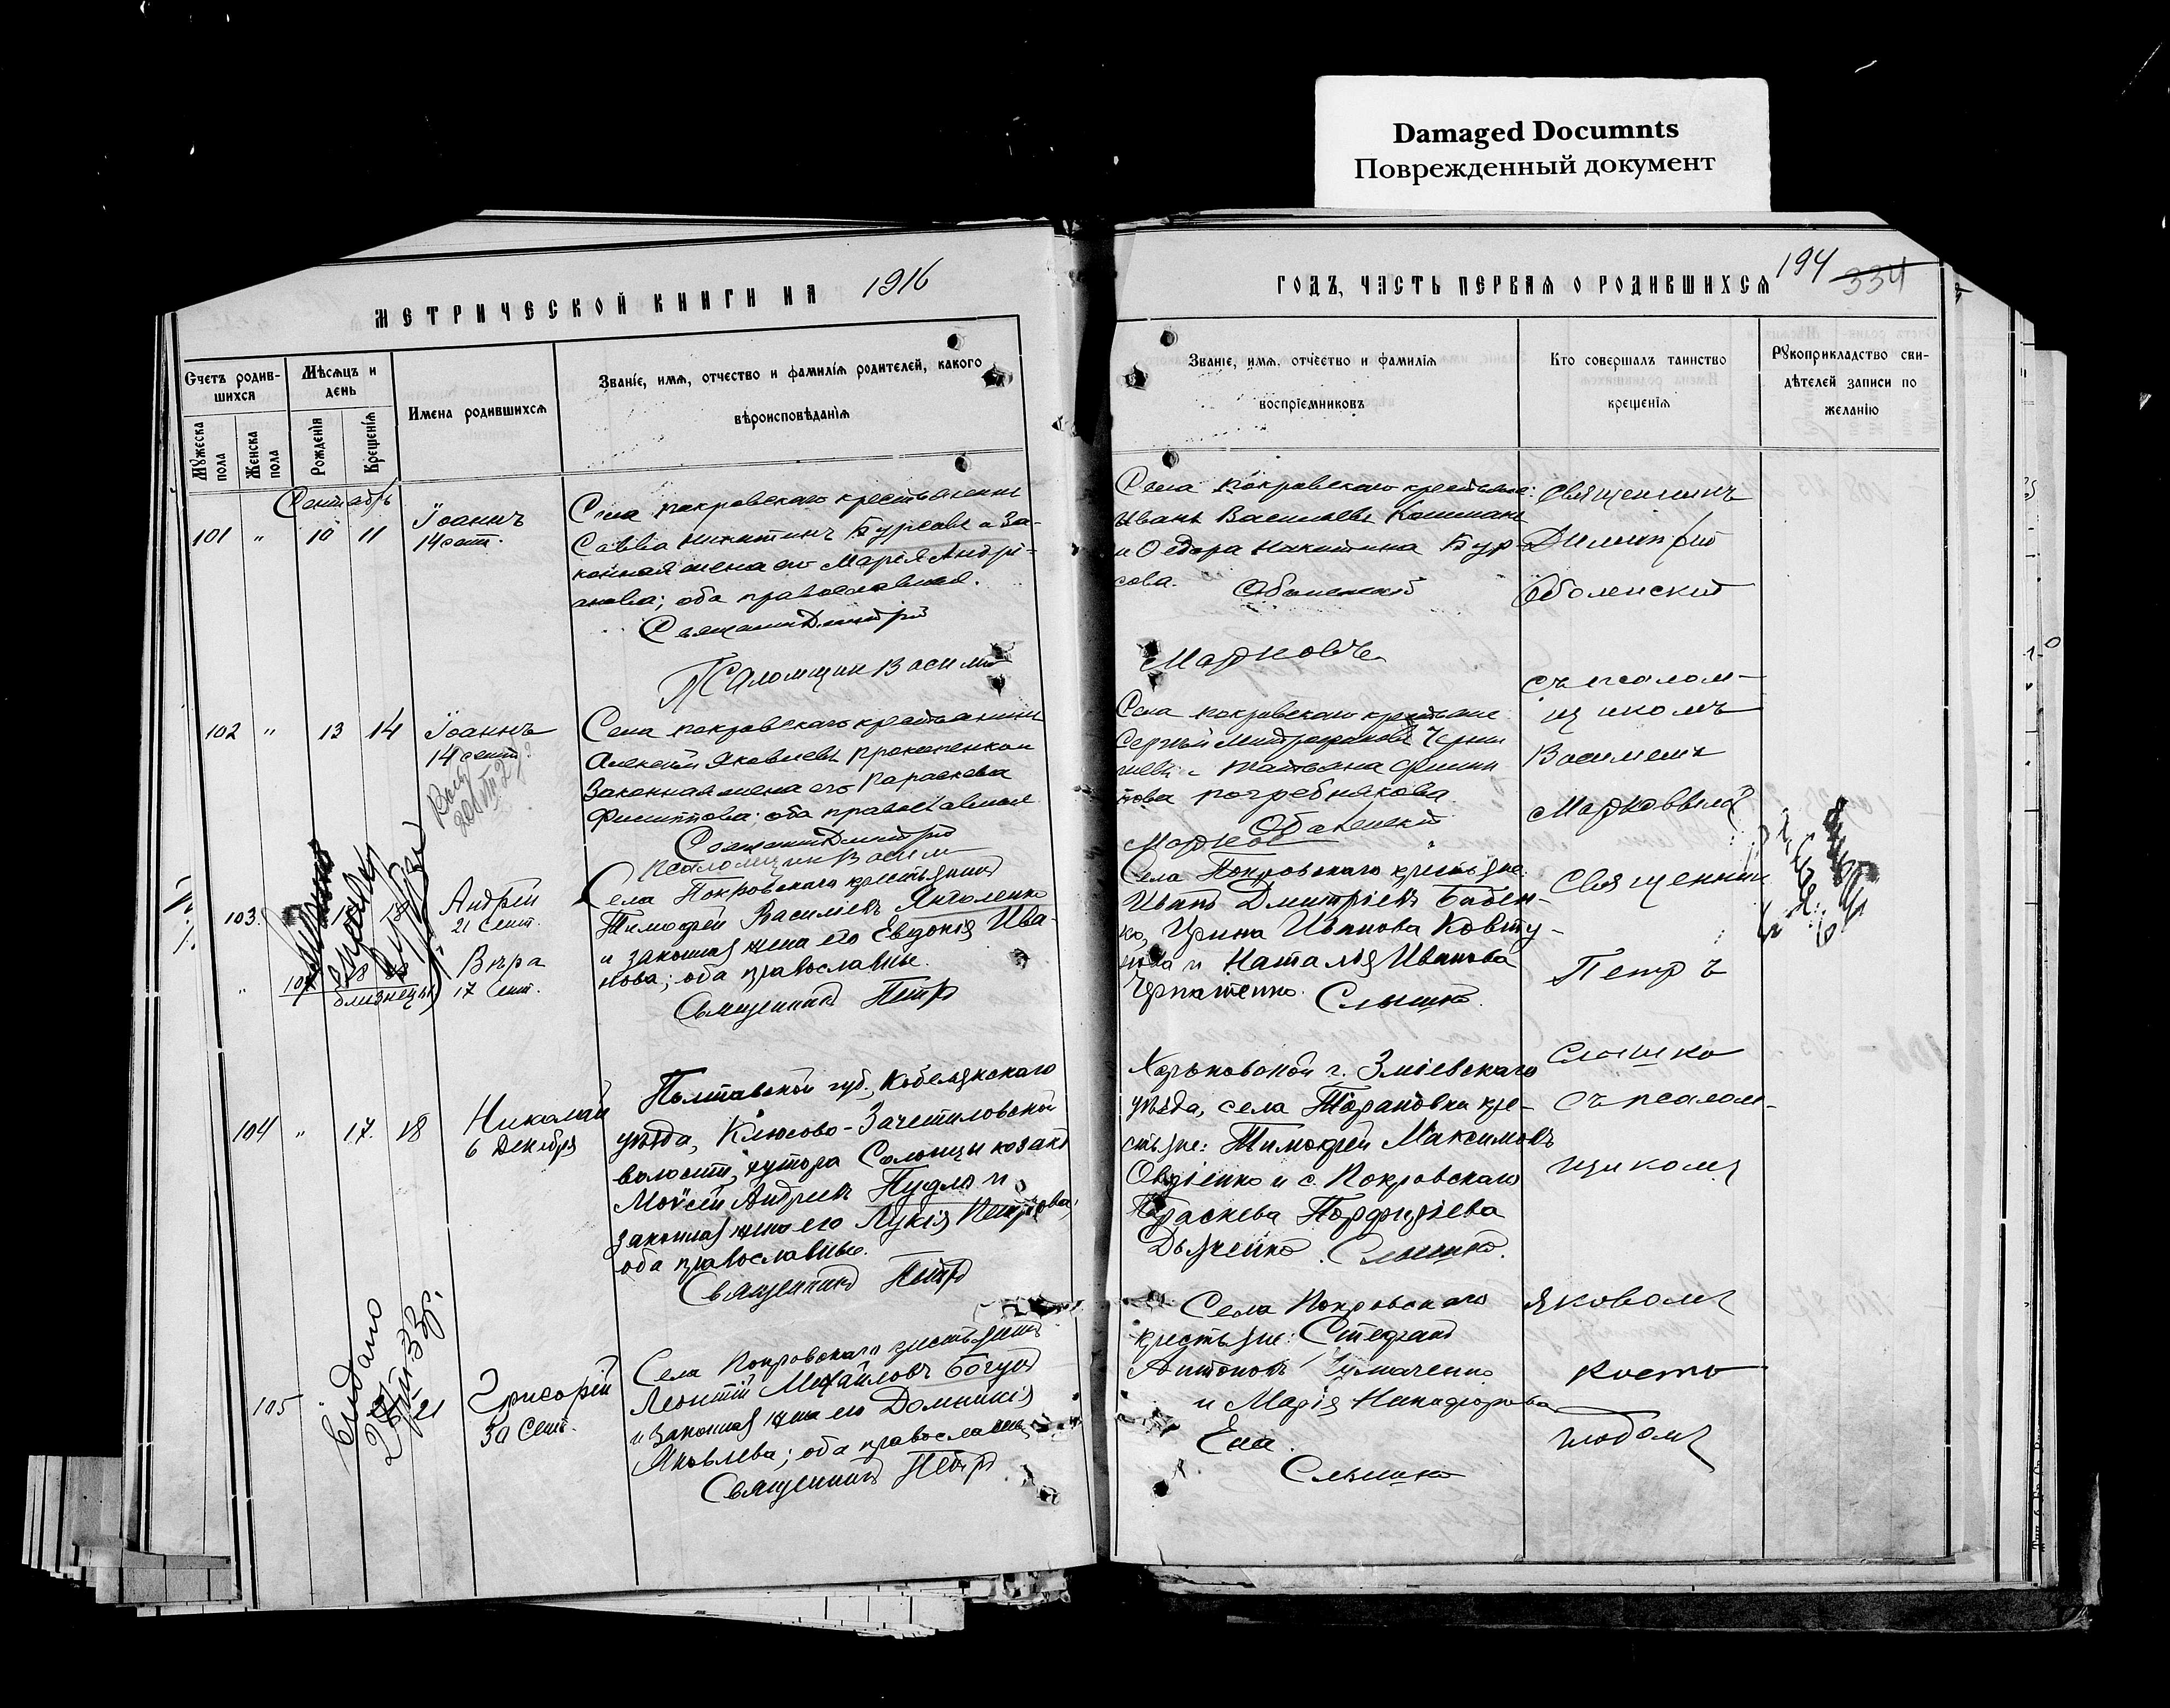 Damaged Documnts
Поврежденный документ
МЕТРИЧЕСКОЙ КНИГИ НА 1916
ГОДЪ, ЧАСТЬ ПЕРВАЯ О РОДИВШИХСЯ 194 334
Счетъ родив-
шихся
Мужеска пола
Женска пола
Мѣсяцъ и
день
Рожденія
Крещенія
Имена родившихся
Званіе, имя, отчество и фамилія родителей, какого
вѣроисповѣданія
Званіе, имя, отчество и фамилія
воспріемниковъ
Кто совершалъ таинство
крещенія
Рукоприкладство сви-
дѣтелей записи по
желанію
Сентябрь
101 " 10 11
Іоаннъ
14 сент.
Села Покровскаго крестьянинъ
Савва Никитинъ Бурсавъ и за-
конная жена его Марія Андрі-
анова; оба православные.
Священ. Димитрій
Псаломщик Василій
Села Покровскаго крестьяне:
Иванъ Васильевъ
и Ѳедора Никитина Бур-
сова.
Оболенскій
Марковъ
Священникъ
Димитрій
Оболенскій
съ псалом-
щикомъ
Василіемъ
102 " 13 14
Іоаннъ
14 сент.
Села Покровскаго крестьянинъ
Алексѣй Яковлевъ Прокопенко и
Законная жена его Параскева
Филиппова; оба православные
Священ. Димитрій
Псаломщик Васил
Села Покровскаго крестьяне
Сергѣй Митрофановъ
и Татьяна Филип
пова Погребнякова
Оболенскій
Марков
103.
Андрей
21 Сент.
Вѣра
17 Сент.
близнецы
Села Покровскаго крестьянинъ
Тимофей Василіевъ Янголенко
и законная жена его Евдокія Ива-
нова; оба православные.
Священникъ Петръ
Села Покровскаго крестьяне:
Иванъ Дмитріевъ Бабен-
ко, Ирина Иванова Ковту-
нова и Наталія Иванова
Слышко.
Священник
Петръ
Слышко
съ псалом-
щикомъ
104 " 17. 18
Николай
6 Декабря
Полтавской губ., Кобелякскаго
уѣзда, Клюсово-Зачепиловской
волости, хутора Солонцы козакъ
Моѵсей Андреевъ Пудло и
законная жена его Лукія Петрова;
оба православные.
Священникъ Петръ
Харьковской г. Зміевскаго
уѣзда, села Тарановки кре-
стьяне: Тимофей Максимовъ
Овдіенко и с. Покровскаго
Параскева Порфиріева
Дьяченко. Слышко.
Яковомъ
105
Видано
Григорій
30 Сент.
Села Покровскаго крестьянинъ
Леонтій Михайловъ Богунъ
и законная жена его Домникія
Яковлева; оба православные
Священникъ Петръ
Села Покровскаго
крестьяне: Стефанъ
Антоновъ
и Марія Никифорова
Ена.
Слышко
Косто
глодомъ